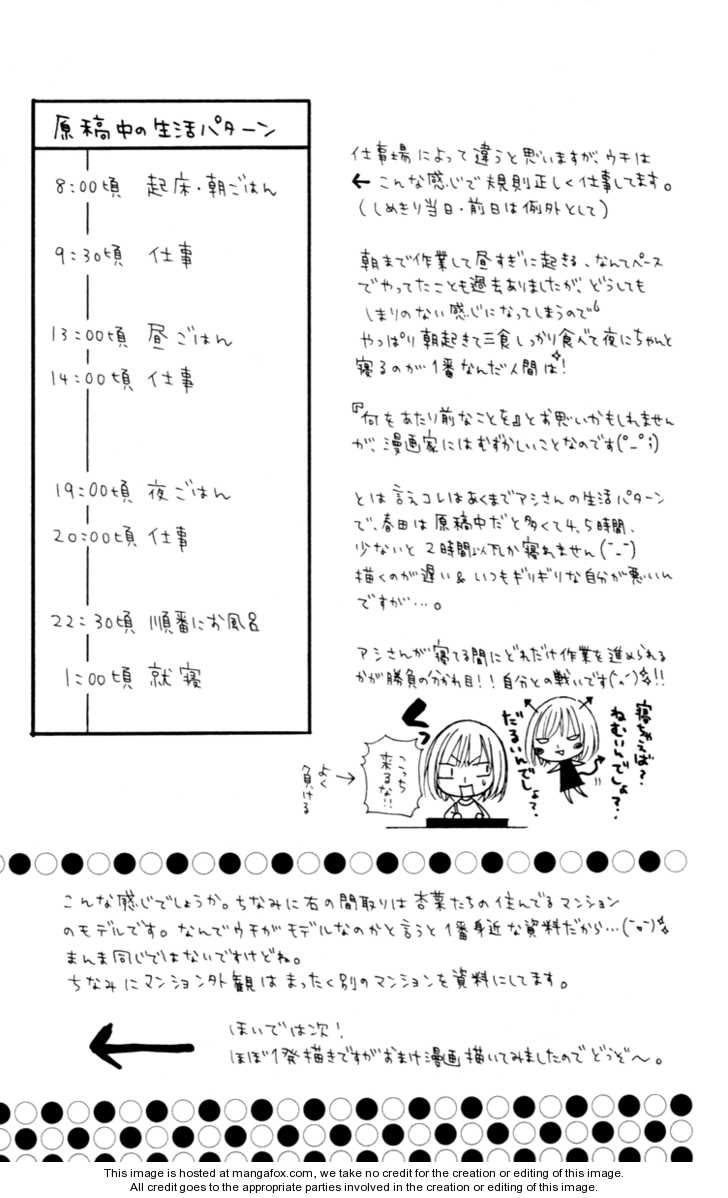 原稿中の生活パターン
8:00頃 起床・朝ごはん
9:30頃 仕事
13:00頃 昼ごはん
14:00頃 仕事
19:00頃 夜ごはん
20:00頃 仕事
22:30頃 順番にお風呂
1:00頃 就寝
仕事場によって違うと思いますが、ウチは
← こんな感じで規則正しく仕事してます。
(しめきり当日・前日は例外として)
朝まで作業して昼すぎに起きる、なんてペース
でやってたことも過去ありましたが、どうしても
しまりのない感じになってしまうので
やっぱり朝起きて三食しっかり食べて夜にちゃんと
寝るのが1番なんだ人間は!
『何をあたり前なことを』とお思いかもしれません
が、漫画家にはむずかしいことなのです(°_°;)
とは言えコレはあくまでアシさんの生活パターン
で、春田は原稿中だと多くて4、5時間、
少ないと2時間以下しか寝れません(-_-)
描くのが遅い&いつもギリギリな自分が悪いん
ですが…。
アシさんが寝てる間にどれだけ作業を進められる
かが勝負の分かれ目!!自分との戦いです!!
寝ちゃえば?
ねむいんでしょ?
だるいんでしょ?
こっち
来るな!!
よく
負ける
こんな感じでしょうか。ちなみに右の間取りは杏葉たちの住んでるマンション
のモデルです。なんでウチがモデルなのかと言うと1番身近な資料だから…
まんま同じではないですけどね。
ちなみにマンション外観はまったく別のマンションを資料にしてます。
ほいでは次!
ほぼ1発描きですがおまけ漫画描いてみましたのでどうぞ〜。
This image is hosted at mangafox.com, we take no credit for the creation or editing of this image.
All credit goes to the appropriate parties involved in the creation or editing of this image.